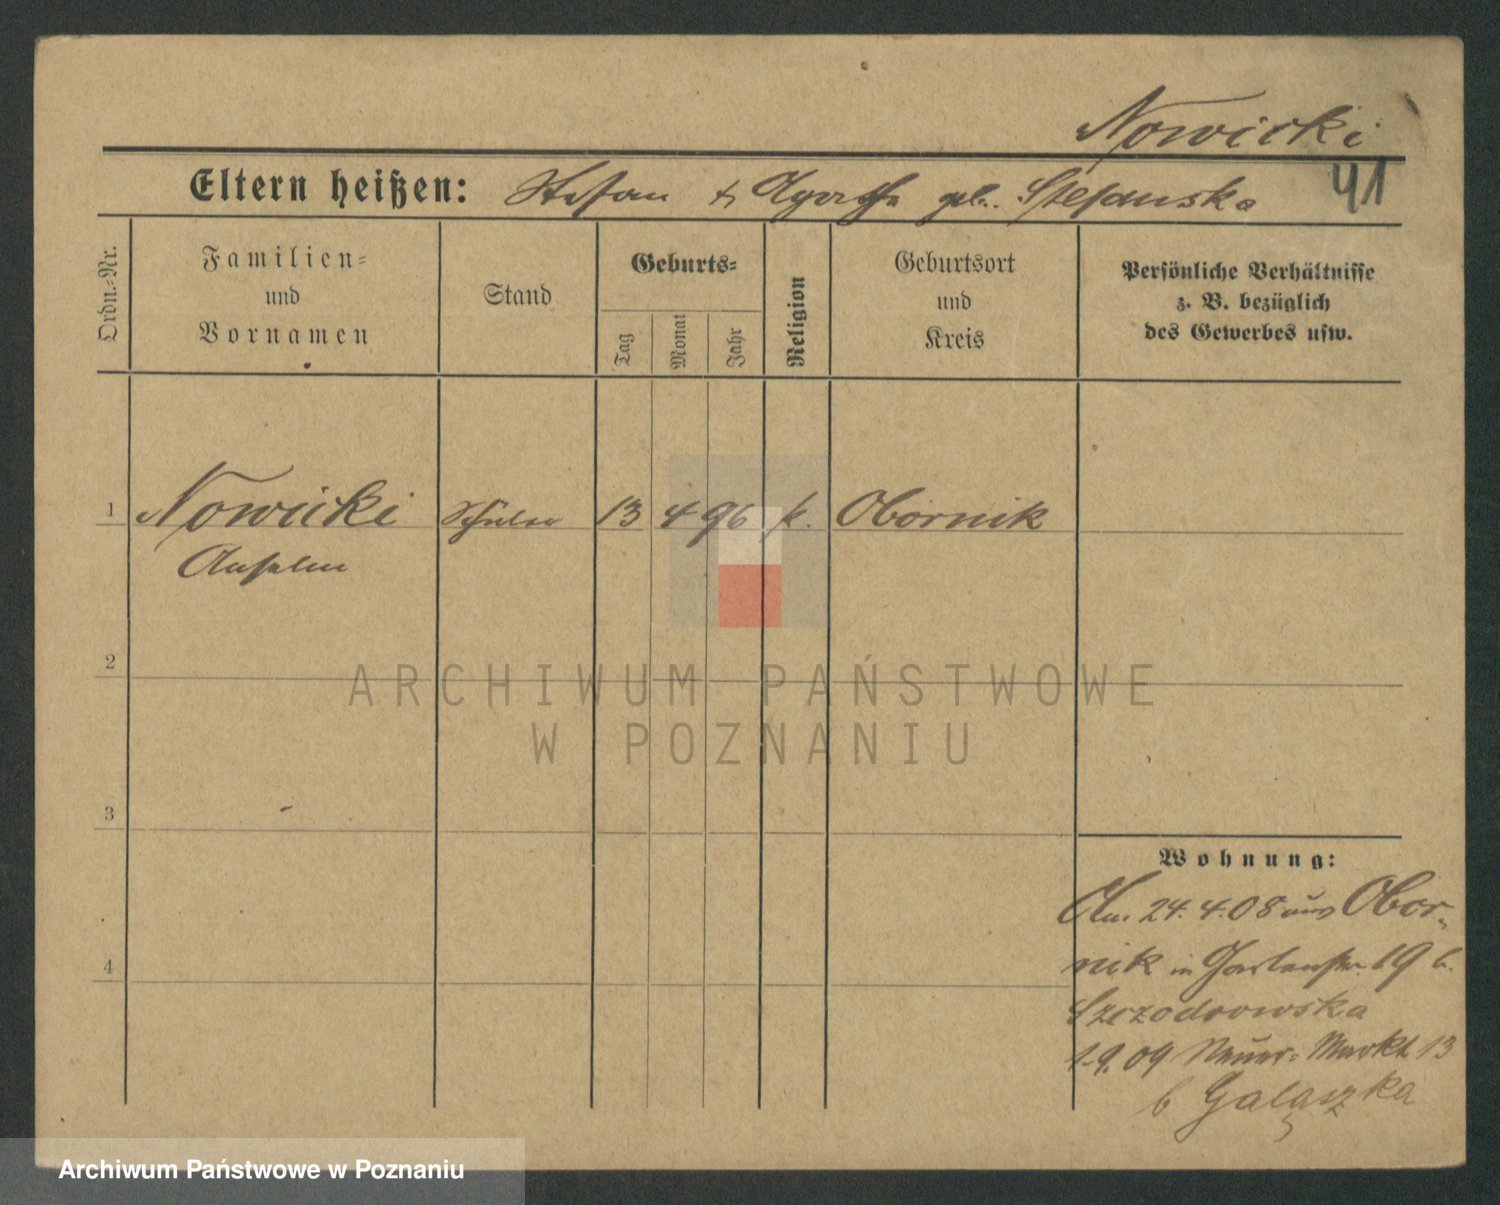 Nowicki
41
Eltern heißen: Stefan & Agathe geb. Stefanska
Ordn.-Nr.
Familien-
und
Vornamen
Stand
Geburts-
Tag
Monat
Jahr
Religion
Geburtsort
und
Kreis
Persönliche Verhältnisse
z. B. bezüglich
des Gewerbes usw.
1 Nowicki Schüler 13 4 96 k. Obornik
Anselm
2
ARCHIWUM PAŃSTWOWE
W POZNANIU
3
Wohnung:
Am 24.4.08 aus Obor-
nik in Gartenstr. 19 b.
4
Szczodrowska
1.9.09 Neuer-Markt 13
b Galąszka
Archiwum Państwowe w Poznaniu